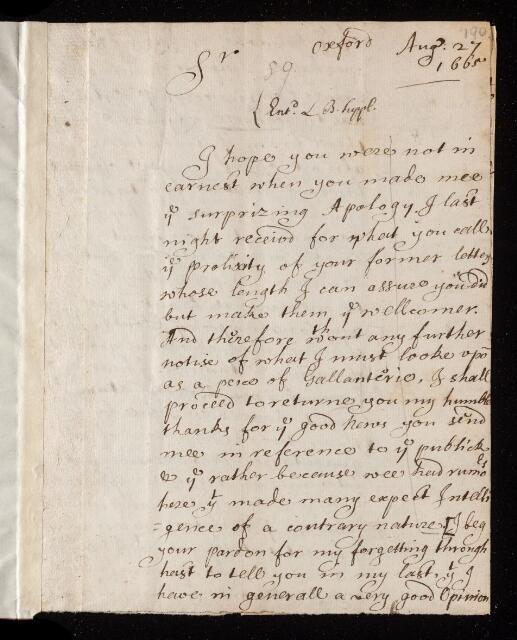 190
Oxford Aug. 27
1665
Sr
59
(Entd. L. B. suppl.
I hope you were not in
earnest when you made mee
ye surprizing Apology I last
night receiod for what you call
ye prolixity of your former letters
whose length I can assure you did
but make them ye wellcomer.
And therefore wthout any further
notise of what I must looke upon
as a peice of Gallanterie, I shall
proceed to returne you my humble
thanks for ye good News you send
mee in reference to ye publick
& ye rather because wee had rumors
here yt made many expect Intelli
=gence of a contrary nature. [I beg
your pardon for my forgetting through
hast to tell you in my last, yt I
have in generall a very good Opinion